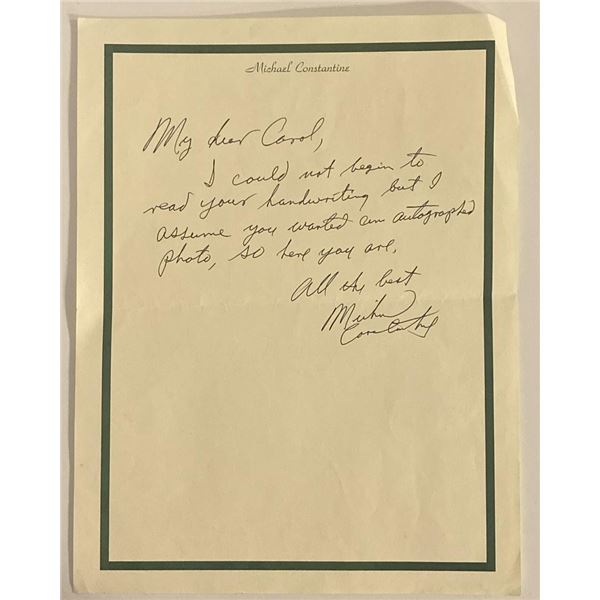 Michael Constantine
My dear Carol,
I could not begin to
read your handwriting but I
assume you wanted an autographed
photo, so here you are.
All the best
Michael
Constantine